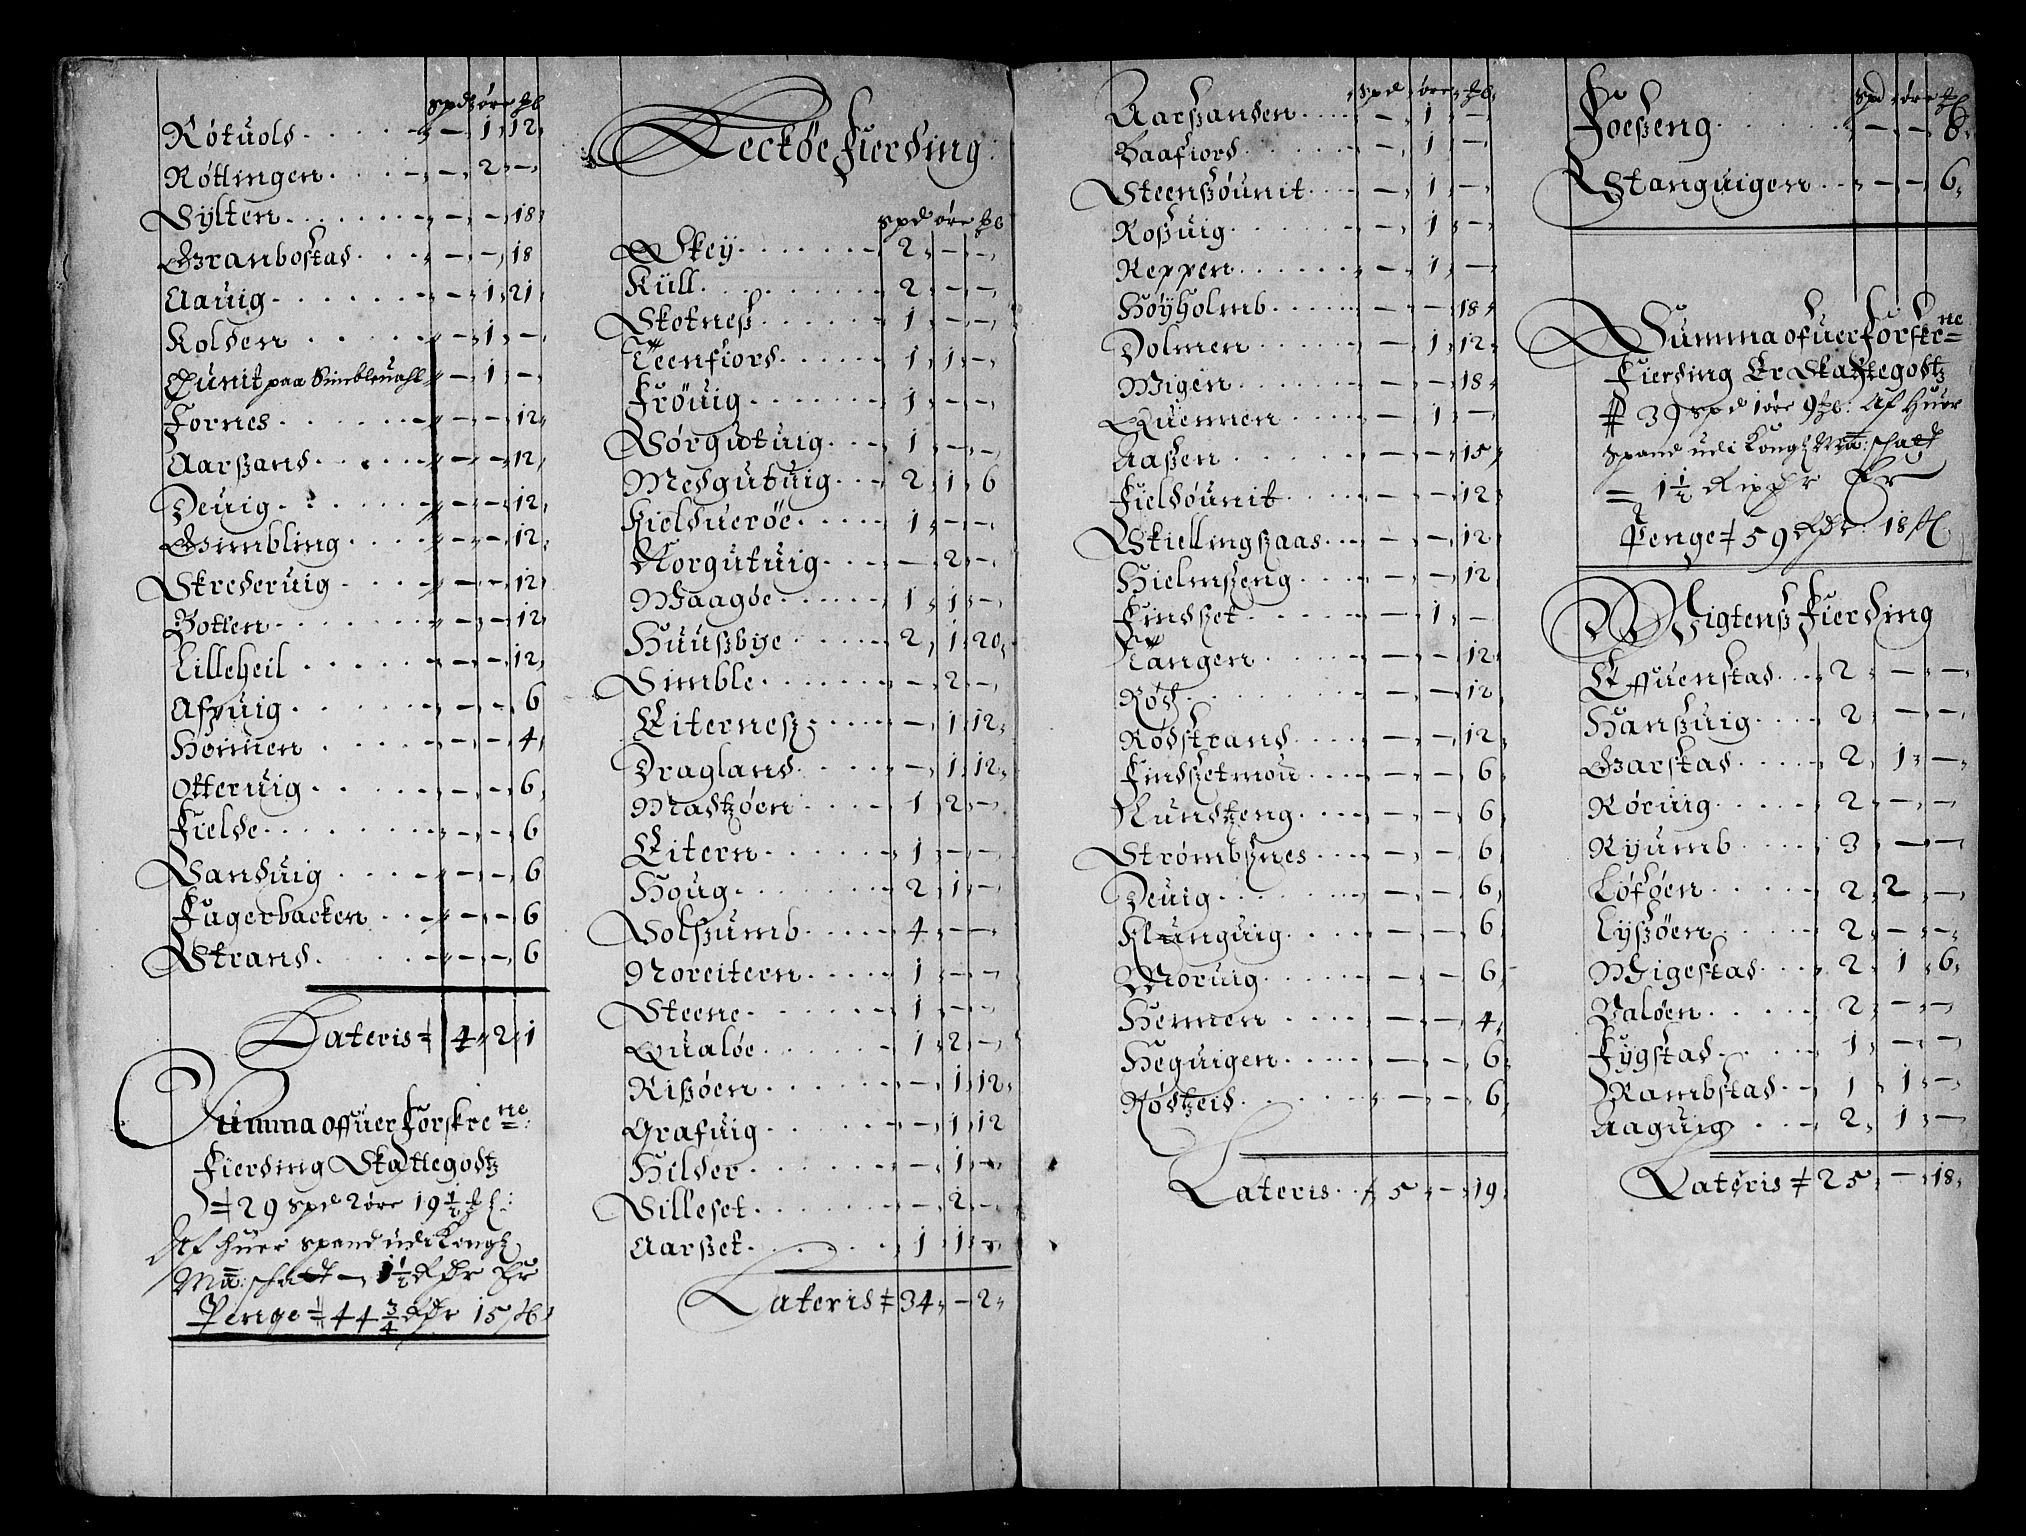 spd øre
Røtuold . . . . — 1 12
Røttingen . . . . — 2 —
Sylten . . . . . — — 18
Granbostad . . . — — 18
Aauig . . . . . — 1 21
Kolden . . . . — 1 —
paa Simblenahl — 1 —
Fornes . . . . . — — 12
Aarsand . . . . — — 12
Deuig . . . . . — — 12
Gimbling . . . . — — 12
Skrederuig . . . — — 12
Botten . . . . . — — 12
Lilleheil . . . . — — 12
Afuig . . . . . — — 6
Hommen . . . . — — 4
Otteruig . . . . — — 6
Fielde . . . . . — — 6
Sanduig . . . . — — 6
Fagerbacken . . — — 6
Strand . . . . . — — 6
Lateris 4 2 1
Summa offuer Forskrene
Fierding Skattegodtz
29 spd 2 øre 19 1/2
Af huer spand udi Kongl
Ma: schatt — 1 1/2 Rdr Er
Penge 44 3/4 Rdr 15
Leckøe Fierding
spd øre
Skey . . . . . 2 — —
Küll . . . . . 2 — —
Skotneß . . . . 1 — —
Teenfiord . . . 1 1 —
Frøuig . . . . . 1 — —
Sørgutuig . . . 1 — —
Medgutuig . . . 2 1 6
Kielduerøe . . . 1 — —
Norgutuig . . . — 2 —
Waagøe . . . . 1 1 —
Huußbye . . . . 2 1 20
Simble . . . . . — 2 —
Eiterneß . . . . — 1 12
Dragland . . . . — 1 12
Madtzøen . . . 1 2 —
Eitern . . . . . 1 — —
Houg . . . . . 2 1 —
Solßumb . . . . 4 — —
Noreitern . . . . 1 — —
Steene . . . . . 1 — —
Qualøe . . . . . 1 2 —
Rißøen . . . . . — 1 12
Grafuig . . . . . — 1 12
Hilder . . . . . — 1 —
Villeset . . . . . — 2 —
Aarßet . . . . . 1 1 —
Lateris 34 — 2
spd øre
Aarßanden — 1 —
Baafiord . . . . — 1 —
Steenßøunit . . — 1 —
Roßuig . . . . . — 1 —
Reppen . . . . . — 1 —
Høyholmb . . . — — 18
Dolmen . . . . — 1 12
Wigen . . . . . — — 18
Quemen . . . . — 1 —
Aaßen . . . . . — — 15
Fieldøunit . . . — — 12
Skiellingßaas . . — — 12
Hielmßeng . . . — — 12
Findßet . . . . — 1 —
Tangen . . . . — — 12
Rød . . . . . . — — 12
Rødstrand . . . — — 12
Findßetmou . . — — 6
Rundtzeng . . . — — 6
Strømbßnes . . — — 6
Deuig . . . . . — — 6
Klunguig . . . . — — 6
Moruig . . . . . — — 6
Hemen . . . . . — — 4
Heguigen . . . . — — 6
Rødtzeid . . . . — — 6
Lateris 5 — 19
spd øre
Foeßeng . . . . — — 6
Stanguigen . . — — 6
Summa ofuer forskrne
Fierding Er Skattegodtz
39 spd 1 øre 9 Af huer
spand udi Kongl Ma: schatt
1 1/2 Rixdr Er
Penge 59 Rdr 18
Wigtenß Fierding
Effuenstad . . . 2 — —
Hanßuig . . . . 2 — —
Garstad . . . . 2 1 —
Røruig . . . . . 2 — —
Ryumb . . . . . 3 — —
Løføen . . . . . 2 2 —
Lyßøen . . . . . 2 — —
Wigestad . . . . 2 1 6
Valøen . . . . . 2 — —
Fygstad . . . . . 1 — —
Rambstad . . . 1 1 —
Aaguig . . . . . 2 1 —
Lateris 25 — 18